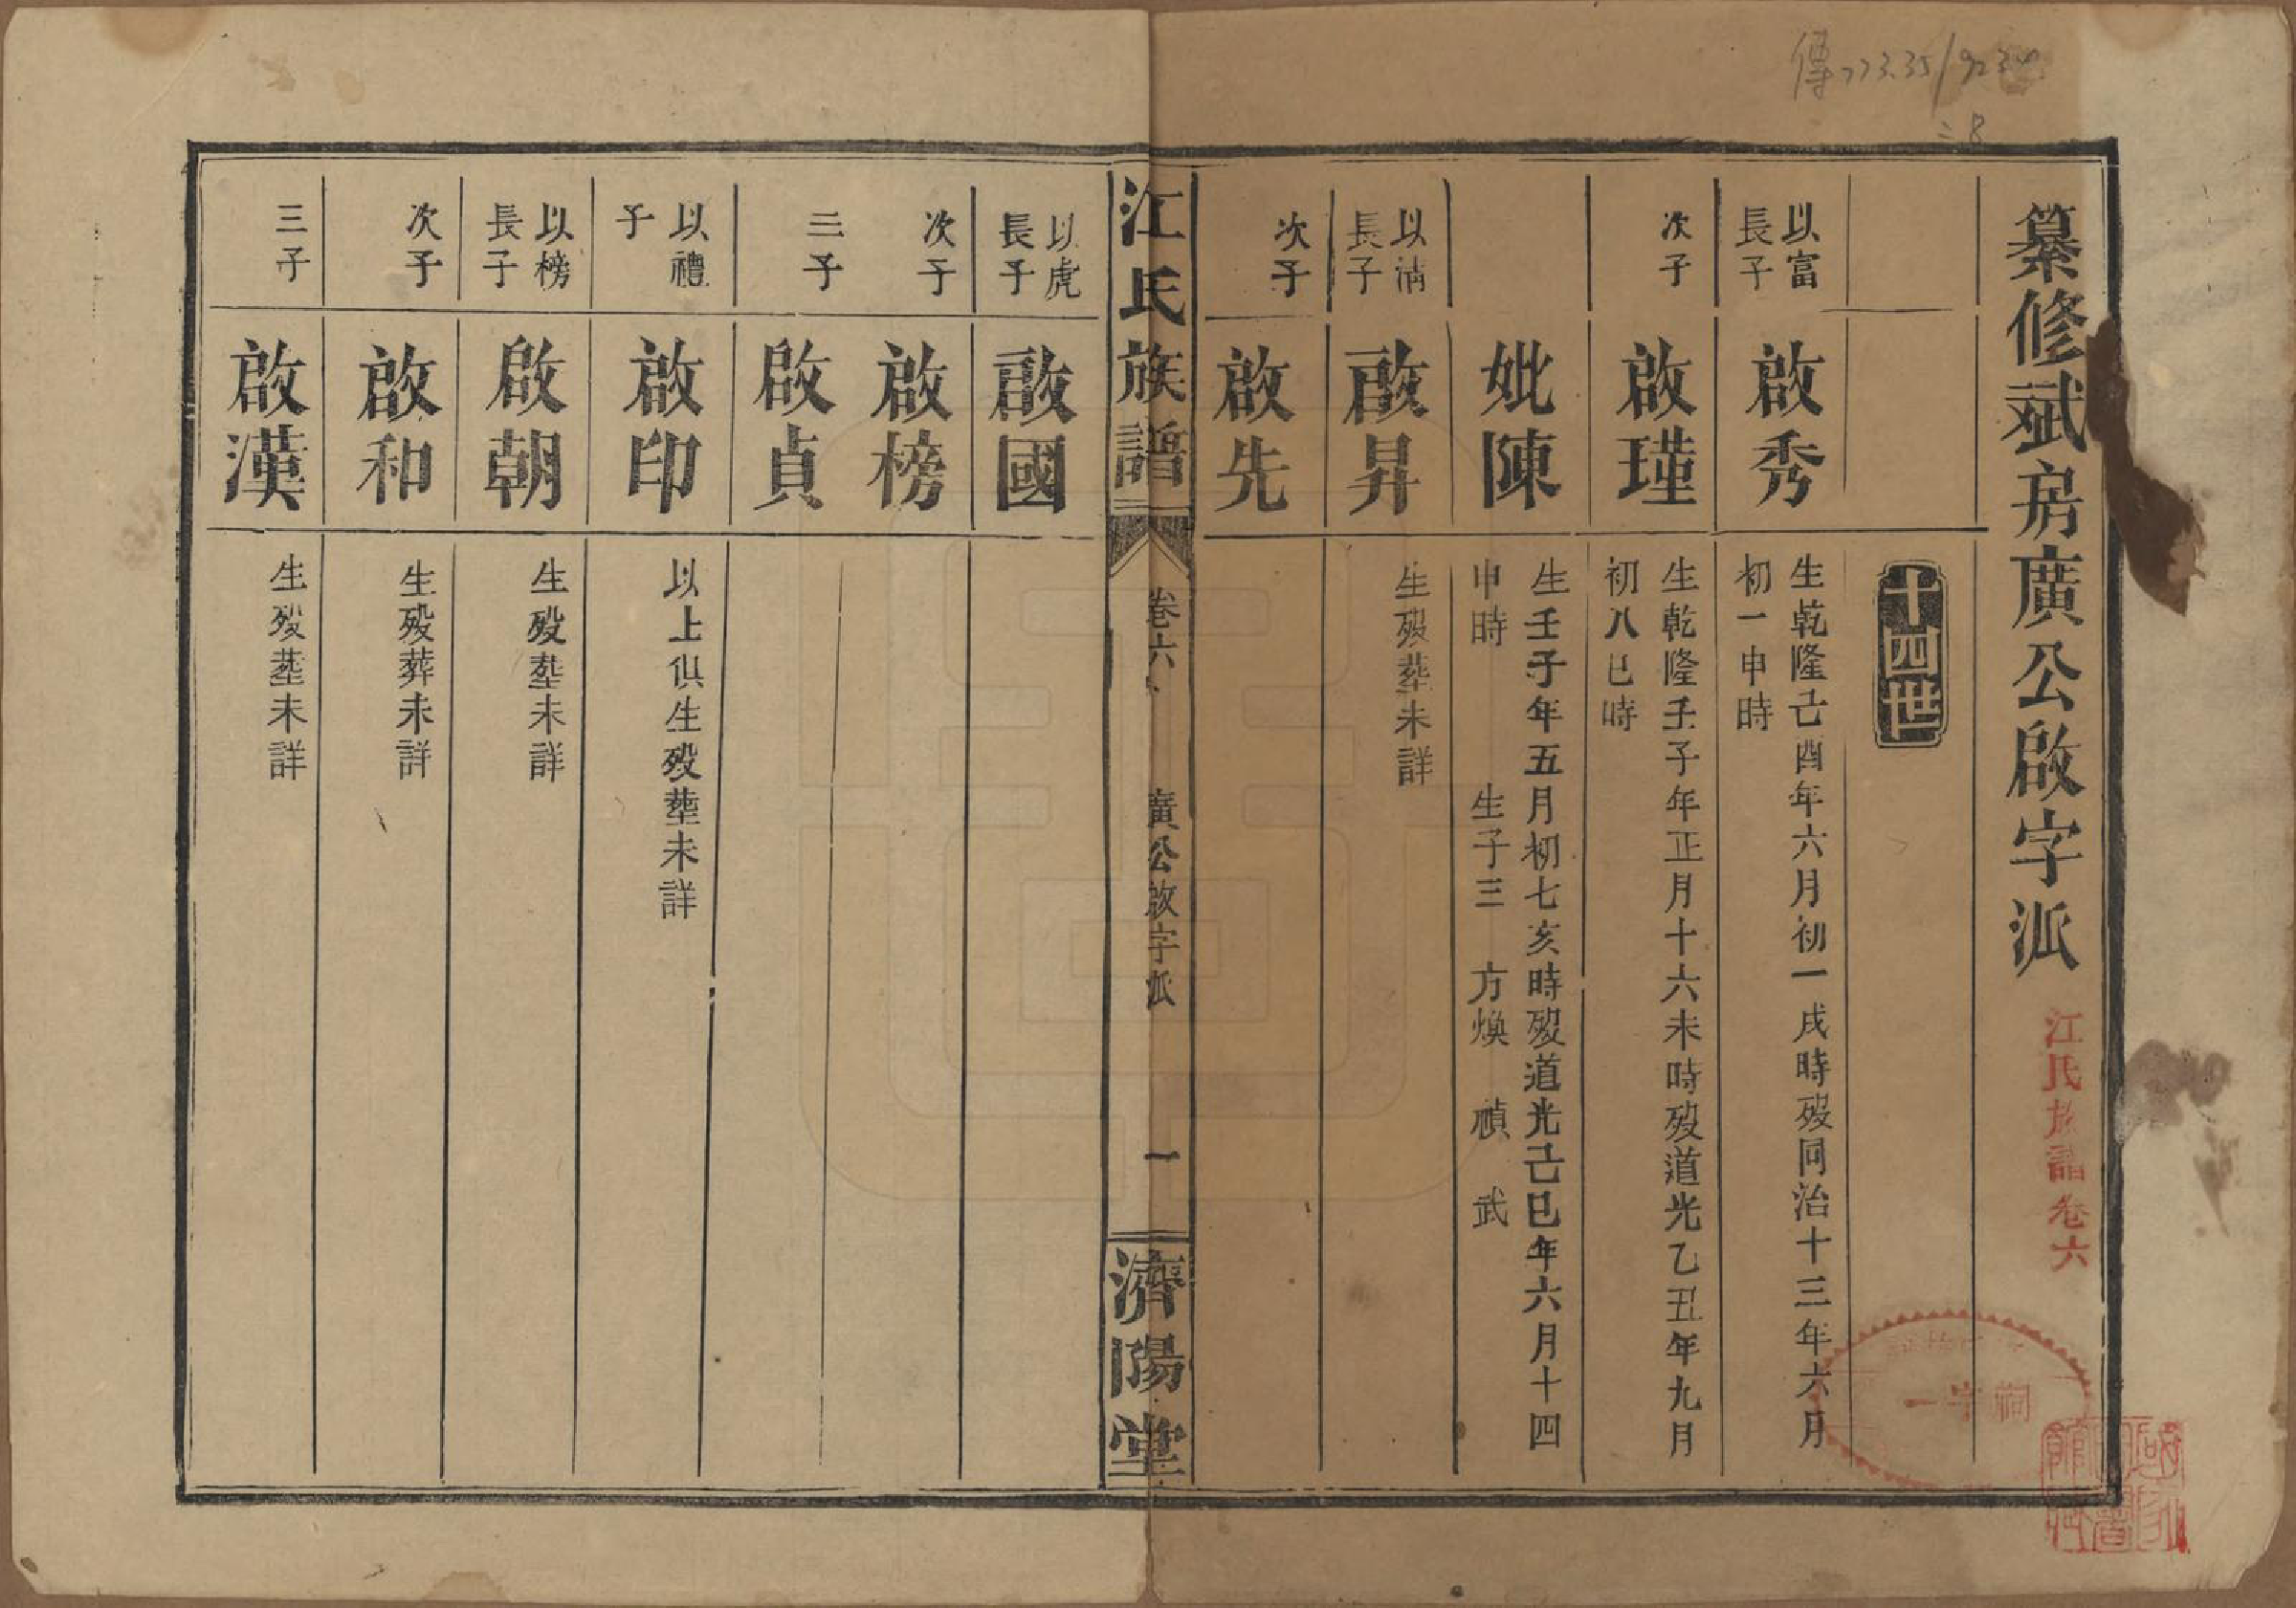 纂修斌房廣公啟字派
江氏族譜卷六
十四世
以富
長子
啟秀
生乾隆己酉年六月初一戌時歿同治十三年六月
初一申時
次子
啟瑾
生乾隆壬子年正月十六未時歿道光乙丑年九月
初八巳時
妣陳
生壬子年五月初七亥時歿道光己巳年六月十四
申時 生子三 方煥 禎 武
以清
長子
啟昇
生歿塟未詳
次子
啟先
江氏族譜
卷六
廣公啟字派
一
濟陽堂
以虎
長子
啟國
次子
啟榜
三子
啟貞
以禮
子
啟印
以上俱生歿塟未詳
以榜
長子
啟朝
生歿塟未詳
次子
啟和
生歿葬未詳
三子
啟漢
生歿塟未詳
傳773.35/